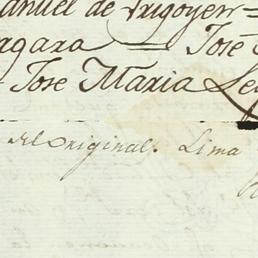 anuel de Yrigoyen =
agaza — José
Jose Maria Le
Original. Lima